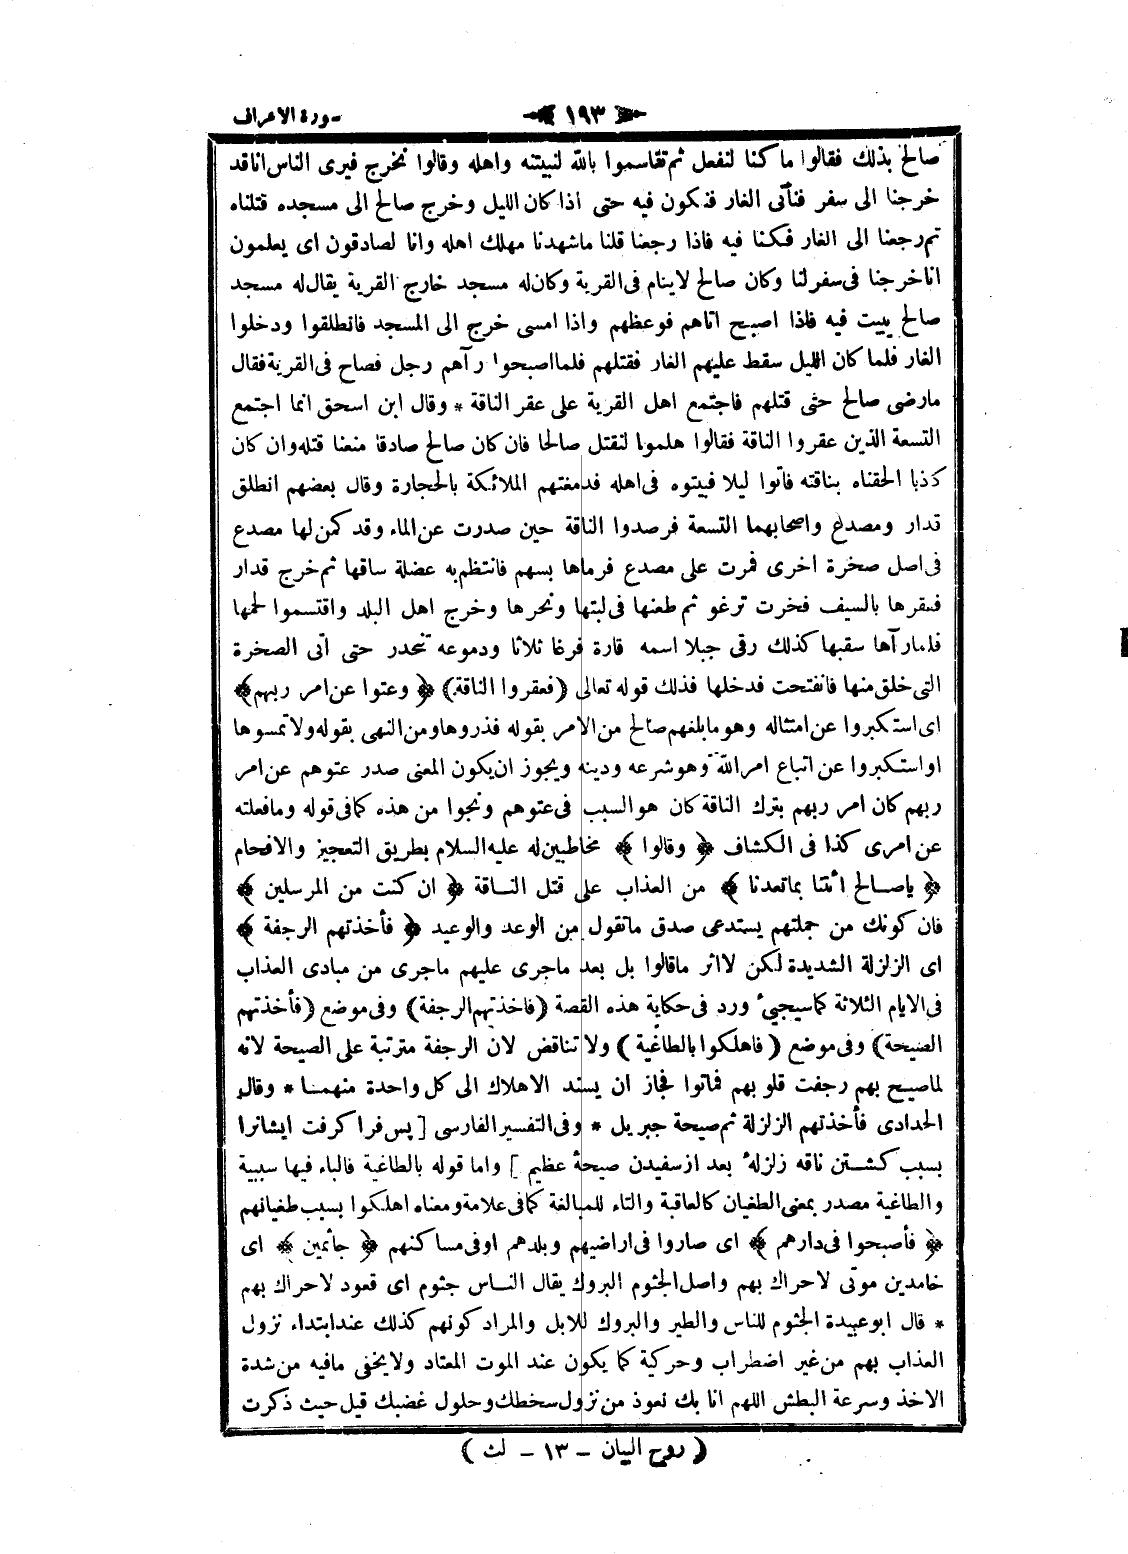 سورة الاعراف
١٩٣
صالح بذلك فقالوا ما كنا لنفعل ثم تقاسموا بالله لنبيتنه واهله وقالوا نخرج فيرى الناس اناقد
خرجنا الى سفر فنأتى الغار فنكون فيه حتى اذا كان الليل وخرج صالح الى مسجده قتلناه
ثم رجعنا الى الغار فكنا فيه فاذا رجعنا قلنا ماشهدنا مهلك اهله وانا لصادقون اى يعلمون
انا خرجنا فى سفر لنا وكان صالح لاينام فى القرية وكان له مسجد خارج القرية يقال له مسجد
صالح يبيت فيه فاذا اصبح اتاهم فوعظهم واذا امسى خرج الى المسجد فانطلقوا ودخلوا
الغار فلما كان الليل سقط عليهم الغار فقتلهم فلما اصبحوا رآهم رجل فصاح فى القرية فقال
مارضى صالح حتى قتلهم فاجتمع اهل القرية على عقر الناقة * وقال ابن اسحق انما اجتمع
التسعة الذين عقروا الناقة فقالوا هلموا لنقتل صالحا فان كان صالح صادقا منعنا قتله وان كان
كذبا الحقناه بناقته فاتوا ليلا فبيتوه فى اهله فدمغتهم الملائكة بالحجارة وقال بعضهم انطلق
قدار ومصدع واصحابهما التسعة فرصدوا الناقة حين صدرت عن الماء وقد كمن لها مصدع
فى اصل صخرة اخرى فمرت على مصدع فرماها بسهم فانتظم به عضلة ساقها ثم خرج قدار
فعقرها بالسيف فخرت ترغو ثم طعنها فى لبتها ونحرها وخرج اهل البلد واقتسموا لحمها
فلما رآها سقبها كذلك رقى جبلا اسمه قارة فرغا ثلاثا ودموعه تنحدر حتى اتى الصخرة
التى خلق منها فانفتحت فدخلها فذلك قوله تعالى (فعقروا الناقة) ﴿ وعتوا عن امر ربهم ﴾
اى استكبروا عن امتثاله وهو مابلغهم صالح من الامر بقوله فذروها ومن النهى بقوله ولاتمسوها
او استكبروا عن اتباع امر الله وهو شرعه ودينه ويجوز ان يكون المعنى صدر عتوهم عن امر
ربهم كان امر ربهم بترك الناقة كان هو السبب فى عتوهم ونجوا من هذه كما فى قوله ومافعلته
عن امرى كذا فى الكشاف ﴿ وقالوا ﴾ مخاطبين له عليه السلام بطريق التعجيز والافحام
﴿ ياصالح ائتنا بماتعدنا ﴾ من العذاب على قتل الناقة ﴿ ان كنت من المرسلين ﴾
فان كونك من جملتهم يستدعى صدق ماتقول من الوعد والوعيد ﴿ فأخذتهم الرجفة ﴾
اى الزلزلة الشديدة لكن لااثر ماقالوا بل بعد ماجرى عليهم ماجرى من مبادى العذاب
فى الايام الثلاثة كما سيجيئ ورد فى حكاية هذه القصة (فاخذتهم الرجفة) وفى موضع (فأخذتهم
الصيحة) وفى موضع (فاهلكوا بالطاغية) ولا تناقض لان الرجفة مترتبة على الصيحة لانه
لماصيح بهم رجفت قلوبهم فماتوا فجاز ان يسند الاهلاك الى كل واحدة منهما * وقال
الحدادى فأخذتهم الزلزلة ثم صيحة جبريل * وفى التفسير الفارسى [ پس فرا كرفت ايشانرا
بسبب كشتن ناقه زلزلهٔ بعد از سفيدن صيحهٔ عظيم ] واما قوله بالطاغية فالباء فيها سببية
والطاغية مصدر بمعنى الطغيان كالعاقبة والتاء للمبالغة كما فى علامة ومعناه اهلكوا بسبب طغيانهم
﴿ فأصبحوا فى دارهم ﴾ اى صاروا فى اراضيهم وبلدهم او فى مساكنهم ﴿ جاثمين ﴾ اى
خامدين موتى لاحراك بهم واصل الجثوم البروك يقال الناس جثوم اى قعود لاحراك بهم
* قال ابو عبيدة الجثوم للناس والطير والبروك للابل والمراد كونهم كذلك عند ابتداء نزول
العذاب بهم من غير اضطراب وحركية كما يكون عند الموت المعتاد ولا يخفى مافيه من شدة
الاخذ وسرعة البطش اللهم انا بك نعوذ من نزول سخطك وحلول غضبك قيل حيث ذكرت
( روح البيان - ١٣ - لث )